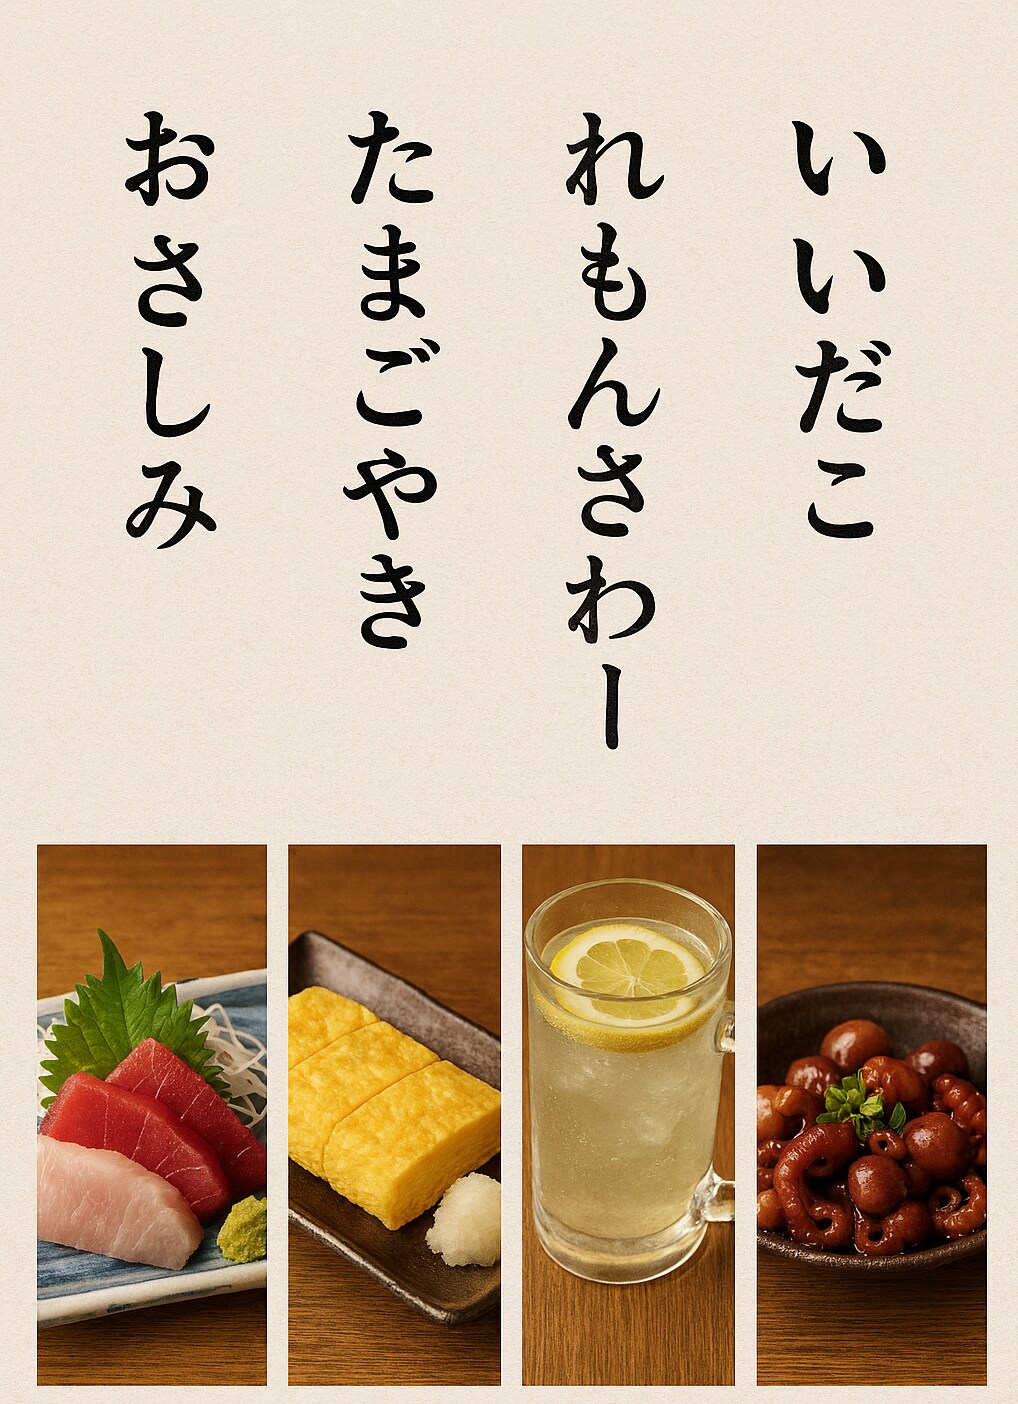 いいだこ
れもんさわー
たまごやき
おさしみ